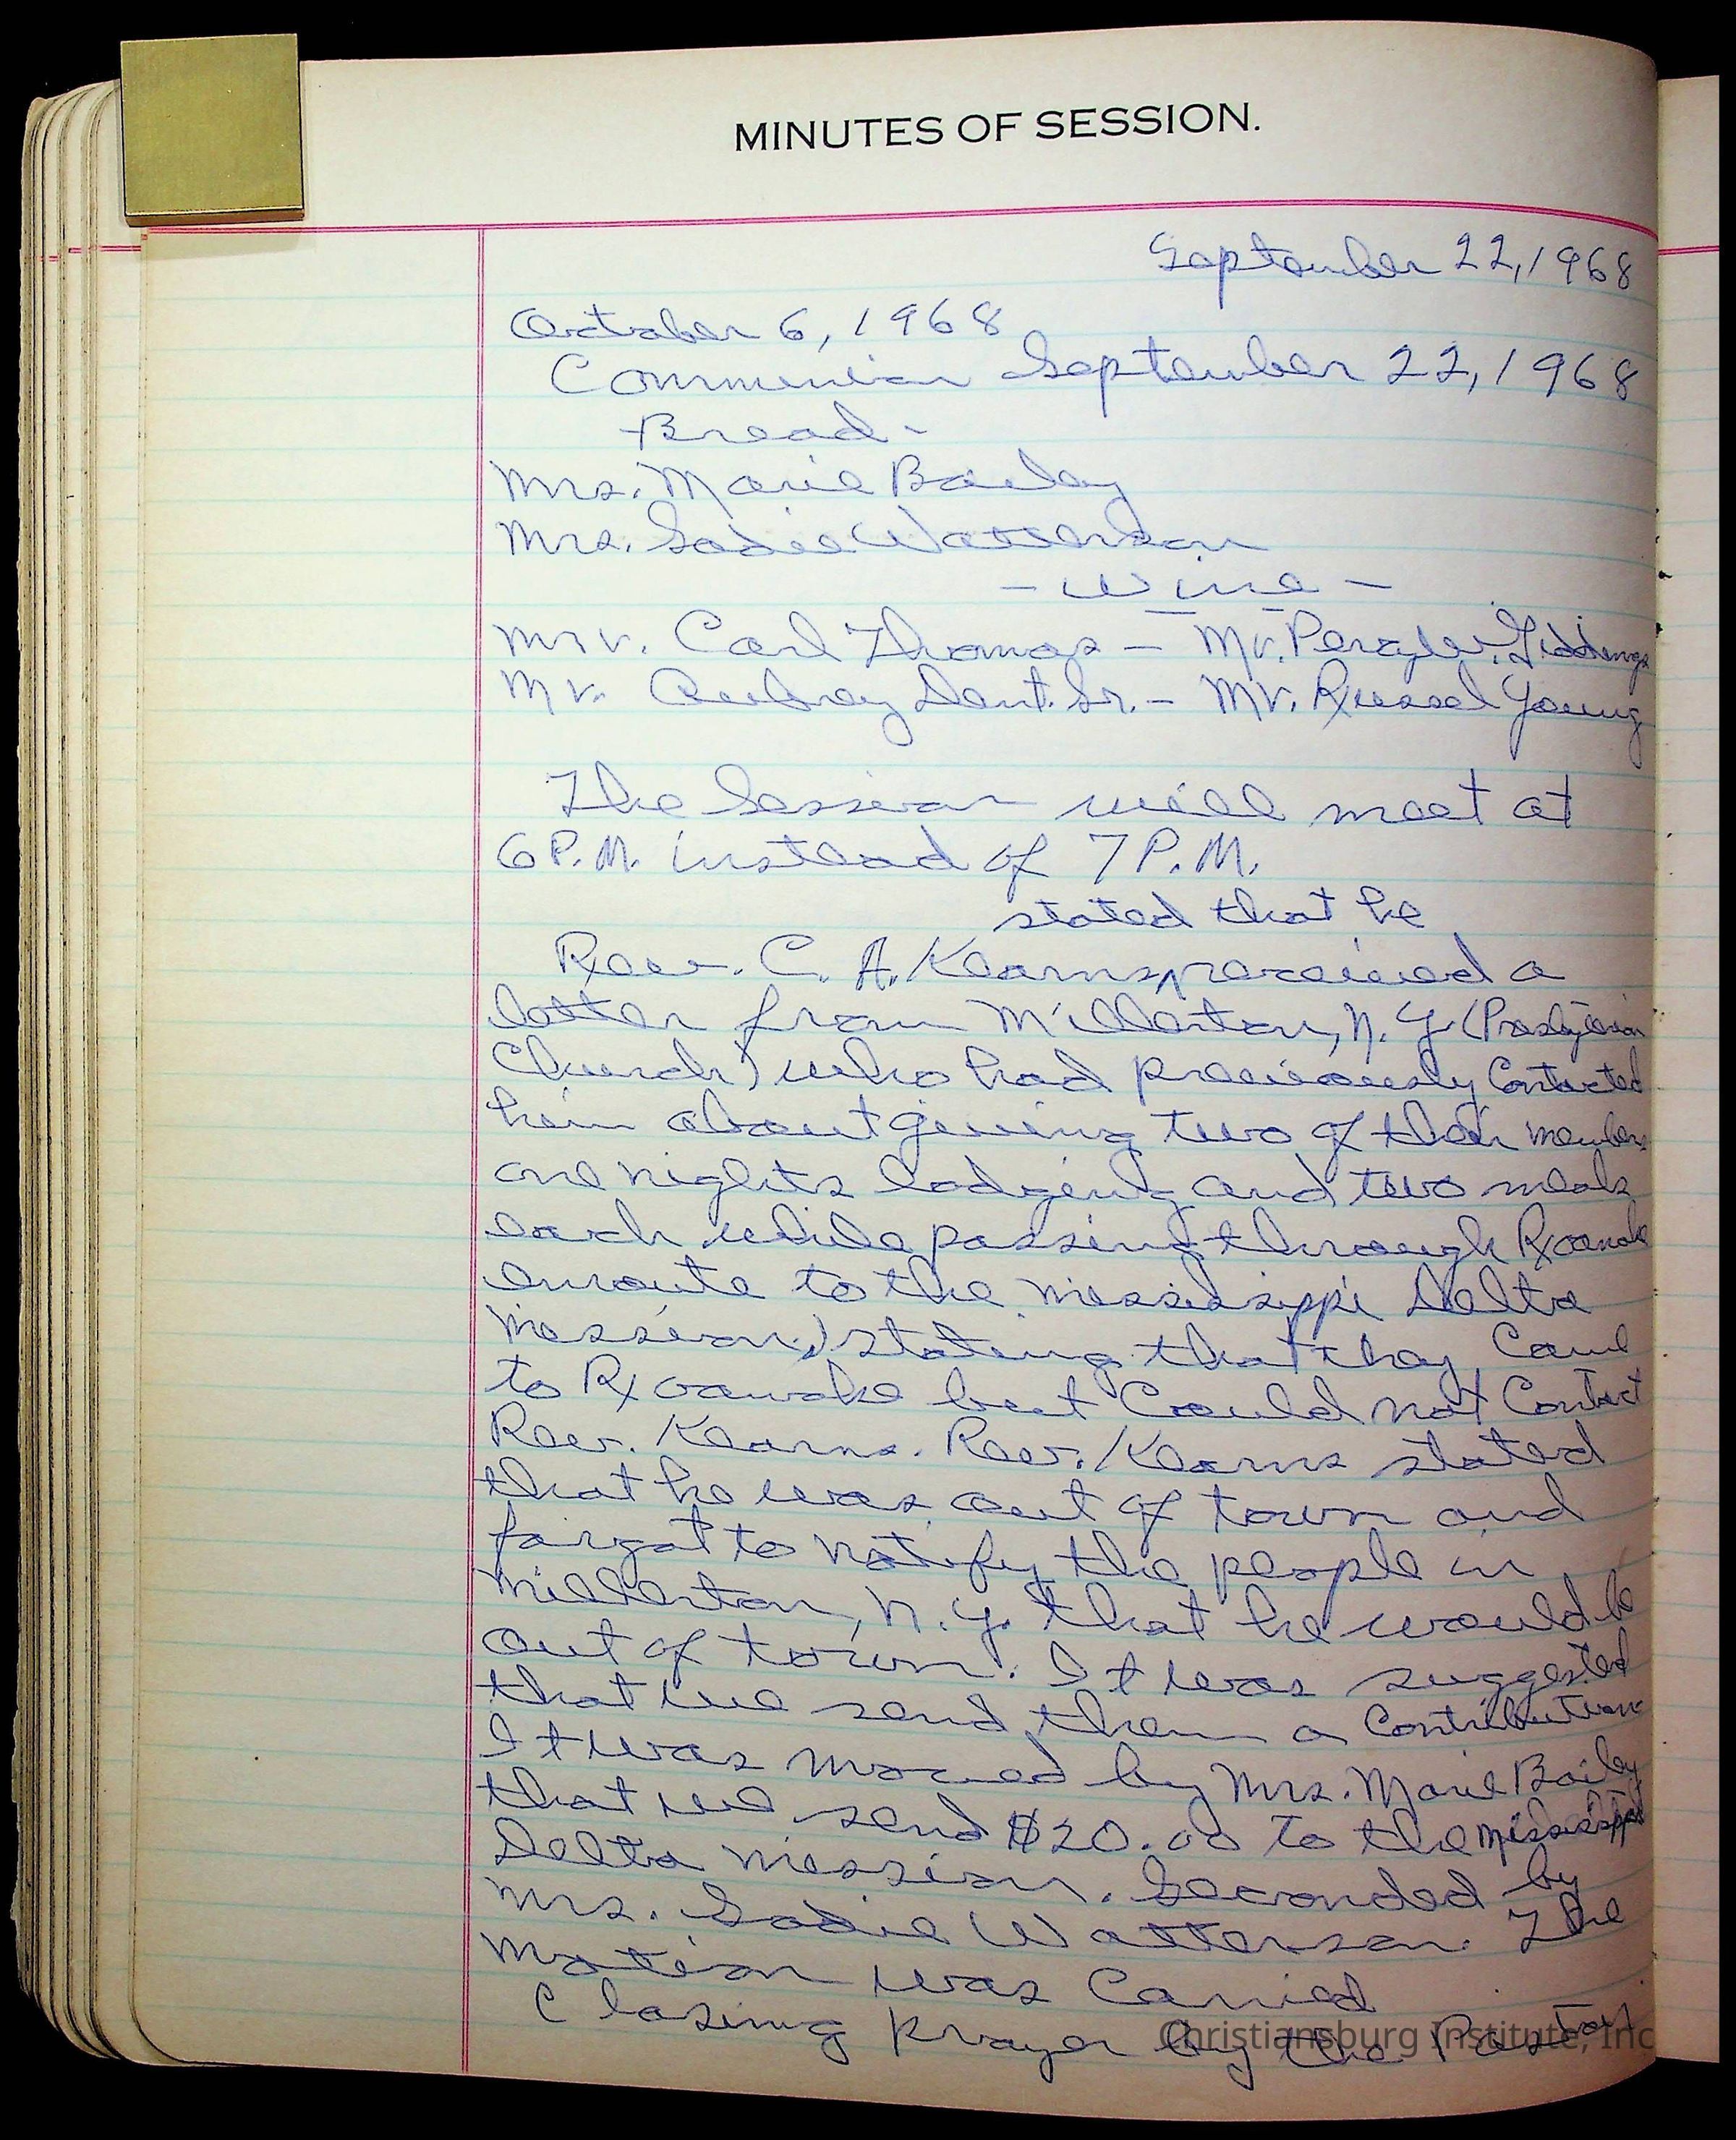 MINUTES OF SESSION.
September 22, 1968
October 6, 1968
Communion September 22, 1968
-Bread-
Mrs. Marie Bailey
Mrs. Sadie Watterson
- Wine -
Mr. Carl Thomas - Mr. Giddings
Mr. Aubrey Dent. Sr. - Mr. Russel Young
The Session will meet at
6 P.M. instead of 7 P.M.
stated that he
Rev. C. A. Kearns received a
letter from Millerton, N.Y. (Presbyterian
Church) who had previously Contacted
him about giving two of their members
one nights lodging and two meals
each while passing through Roanoke
enroute to the Mississippi Delta
Mission, stating that they Came
to Roanoke but Could not Contact
Rev. Kearns. Rev. Kearns stated
that he was out of town and
forgot to notify the people in
Millerton, N.Y. that he would be
out of town. It was suggested
that we send them a Contribution
It was moved by Mrs. Marie Bailey
that we send $20.00 to the Mississippi
Delta Mission. Seconded by
Mrs. Sadie Watterson. The
Motion was Carried
Closing Prayer by the Pastor
Christiansburg Institute, Inc